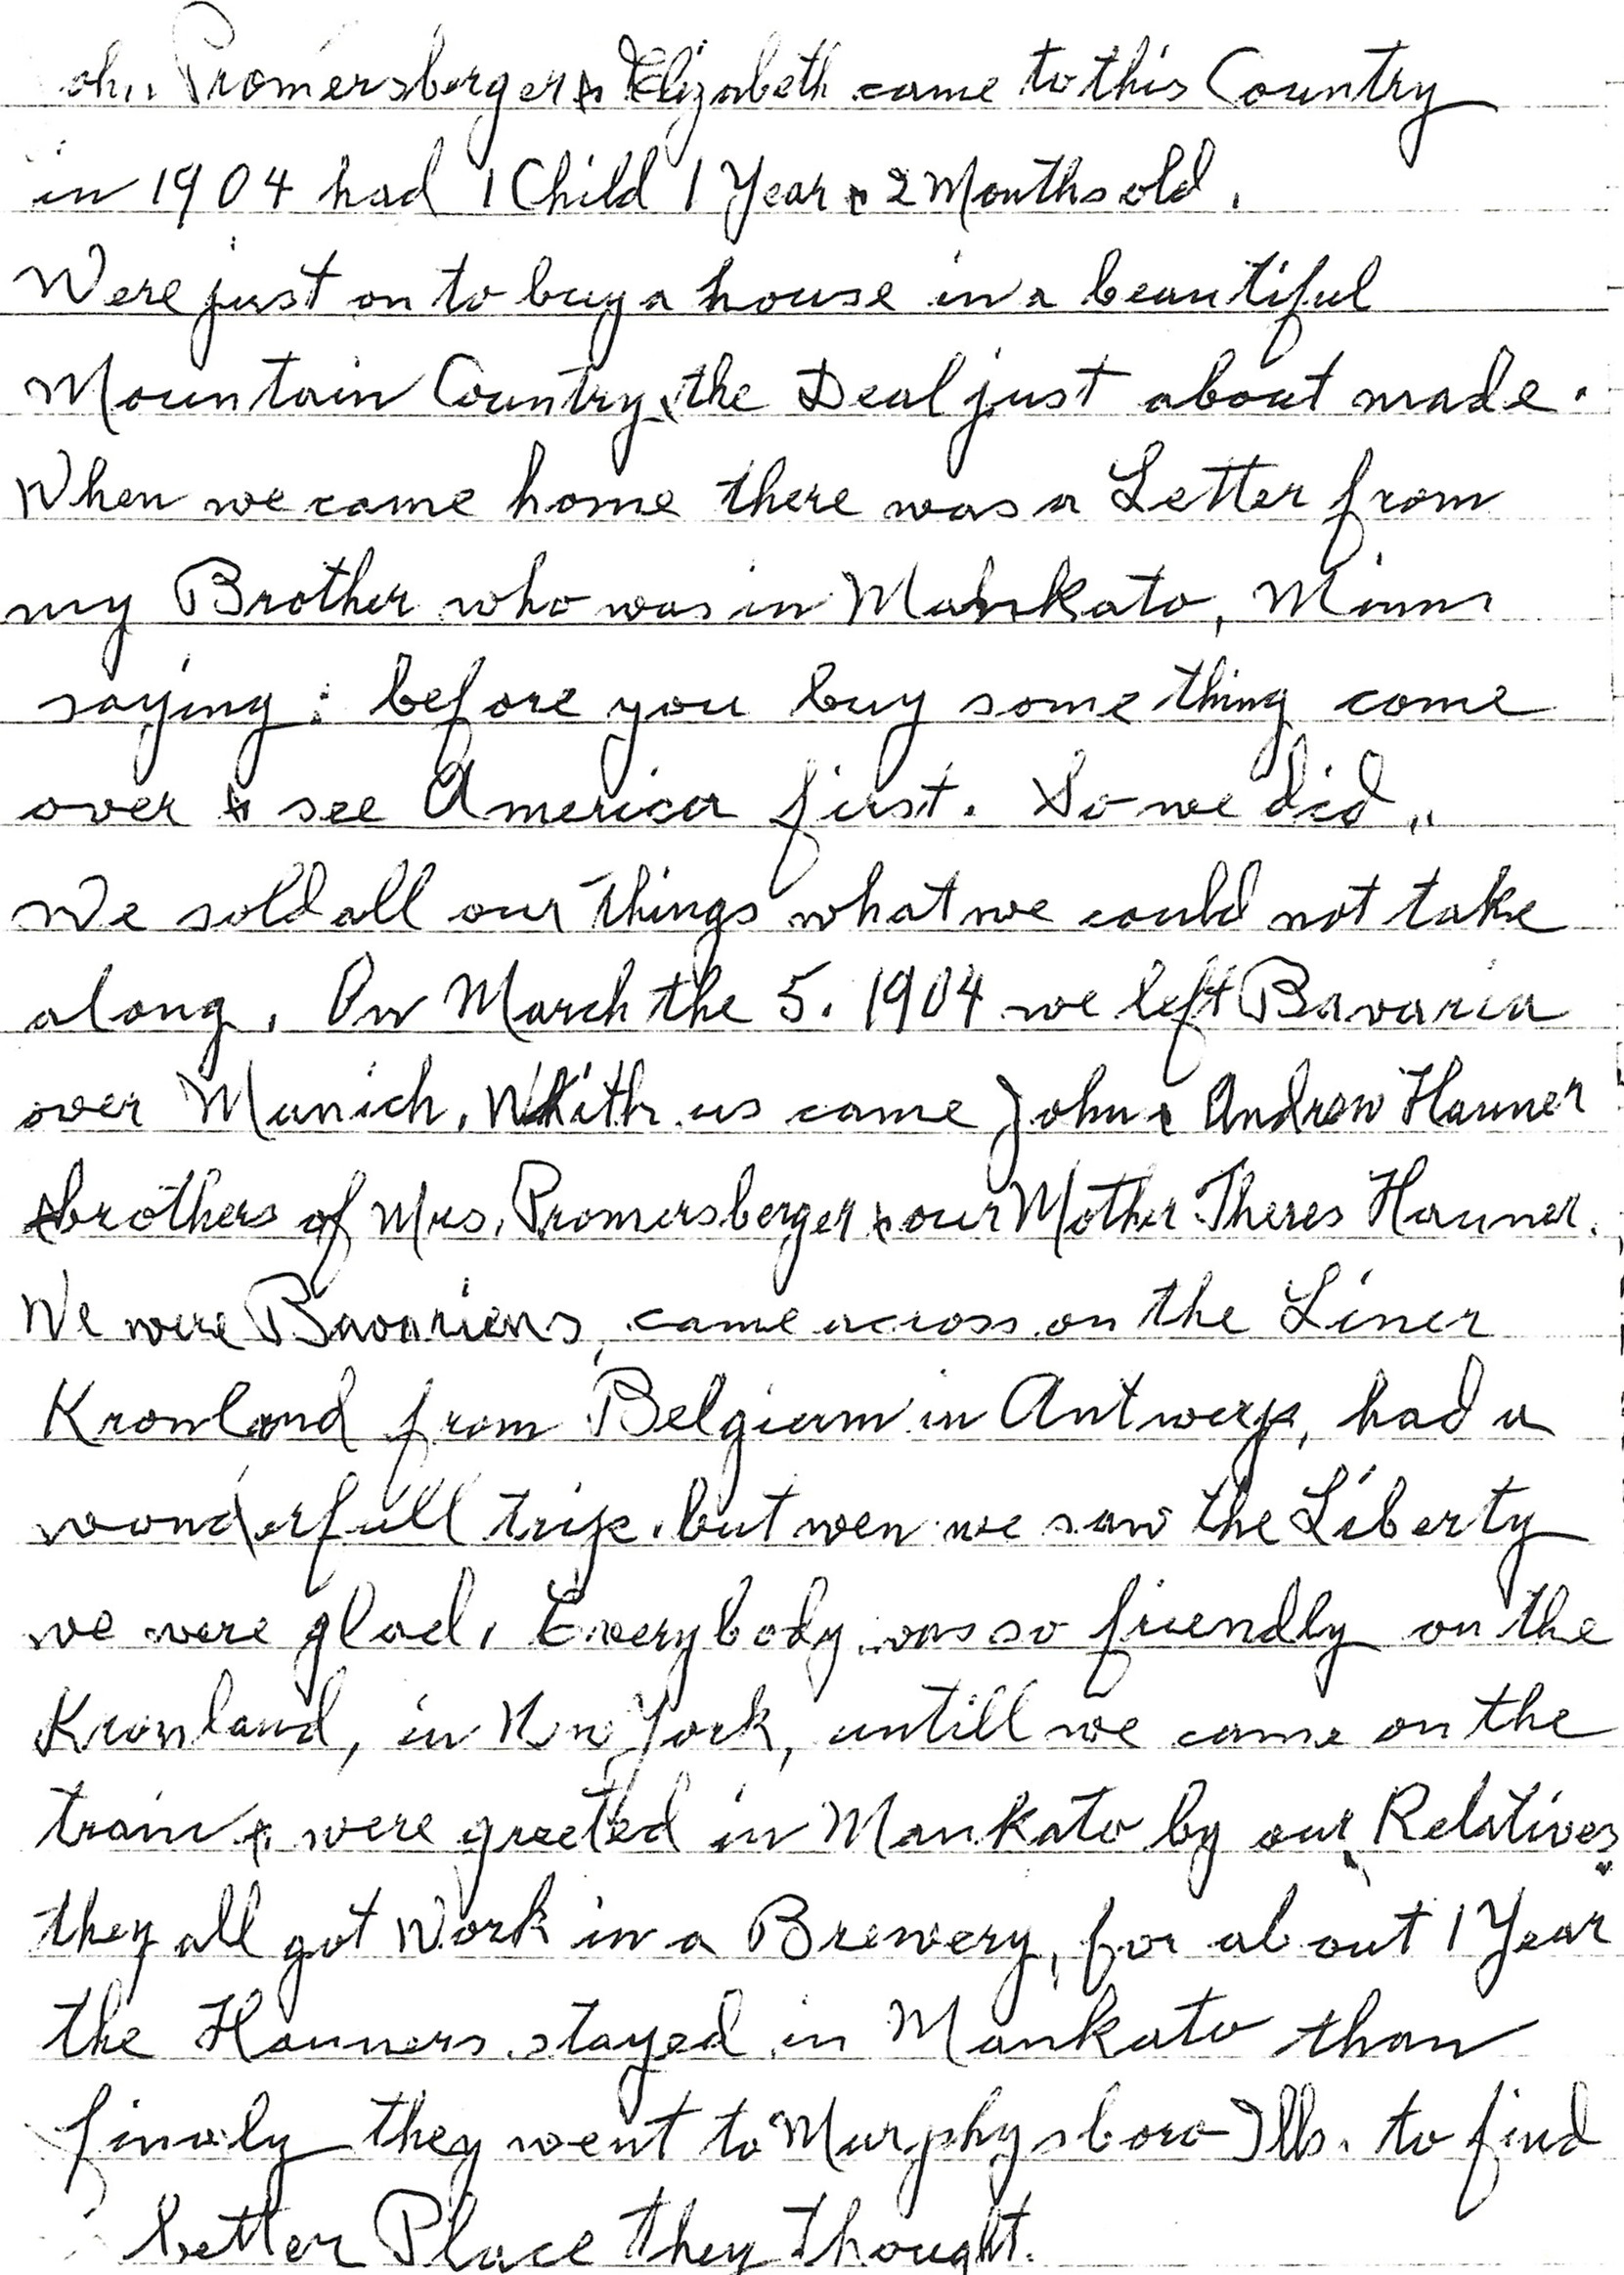 John Promersberger & Elizabeth came to this Country
in 1904 had 1 Child 1 Year & 2 Months old.
Were just on to buy a house in a beautiful
Mountain Country, the Deal just about made.
When we came home there was a Letter from
my Brother who was in Mankato, Minn
saying: before you buy some thing come
over & see America first. So we did.,
We sold all our things what we could not take
along. On March the 5. 1904 we left Bavaria
over Munich. With us came John & Andrew Hauner
brothers of Mrs. Promersberger & our Mother Theres Hauner.
We were Bavariens, came across on the Liner
Kronland from Belgium in Antwerp, had a
wonderfull trip. but wen we saw the Liberty
we were glad. Everybody was so friendly on the
Kronland, in New York, untill we came on the
train & were greeted in Mankato by our Relitives
they all got Work in a Brewery, for about 1 Year
the Hauners stayed in Mankato than
finaly they went to Murphysboro Ills. to find
better Place they thought.